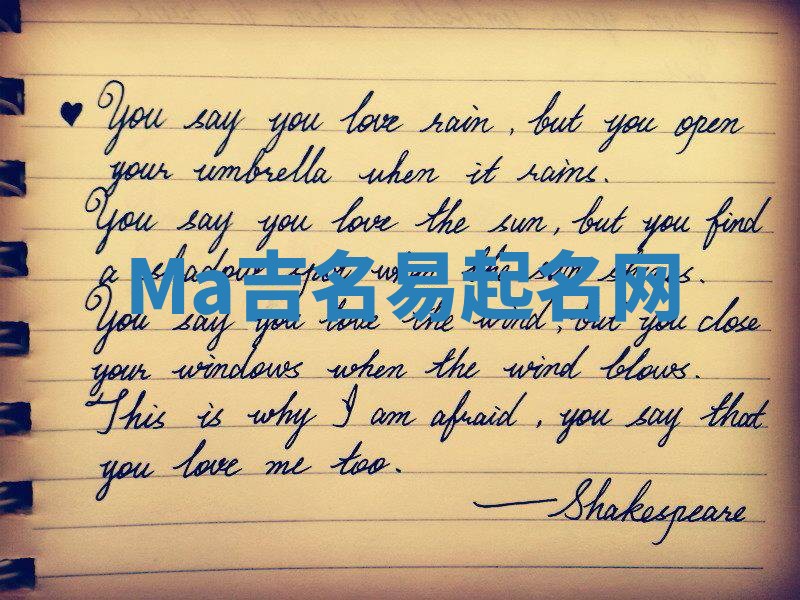 ♥ You say you love rain, but you open
your umbrella when it rains.
You say you love the sun, but you find
a shadow spot when the sun shines.
Ma吉名易起名网
You say you love the wind, but you close
your windows when the wind blows.
This is why I am afraid, you say that
you love me too.
—Shakespeare